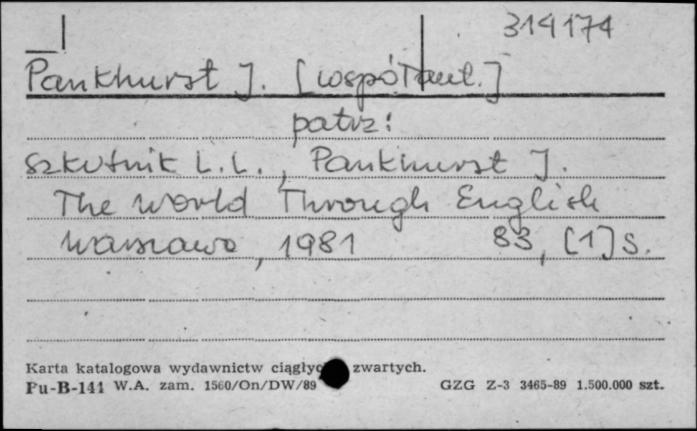 314174
Pankhurst J. [współaut.]
patrz:
Szkutnik L.L., Pankhurst J.
The World Through English
Warszawa, 1981 83, [1] s.
Karta katalogowa wydawnictw zwartych.
Pu-B-141 W.A. zam. 1560/On/DW/89 GZG Z-3 3465-89 1.500.000 szt.